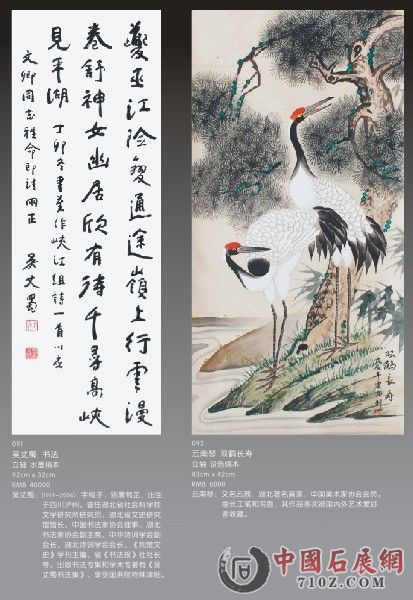 夔巫江險變通途嶺上行雲漫
卷舒神女幽居欣有待千尋高峽
見平湖 丁卯冬書舊作峽江組詩一首以應
文卿同志雅命即請兩正
吴丈蜀
双鹤长寿
091
吴丈蜀 书法
立轴 水墨绢本
92cm x 32cm
RMB 40000
吴丈蜀：(1919-2006) 字恂子，别署荀芷，出生
于四川泸州。曾任湖北省社会科学院
文学研究所研究员、湖北省文史研究
馆馆长、中国书法家协会理事、湖北
书法家协会副主席、中华诗词学会副
会长、湖北诗词学会会长、《荆楚文
史》学刊主编、省《书法报》社社长
等。出版书法专集和学术专著有《吴
丈蜀书法集》、享受国务院特殊津贴。
092
云南琴 双鹤长寿
立轴 设色绢本
83cm x 42cm
RMB 6000
云南琴：又名云燕，湖北著名画家，中国美术家协会会员。
擅长工笔和写意，其作品多次被国内外艺术爱好
者收藏。
中國石展網
71OZ.COM